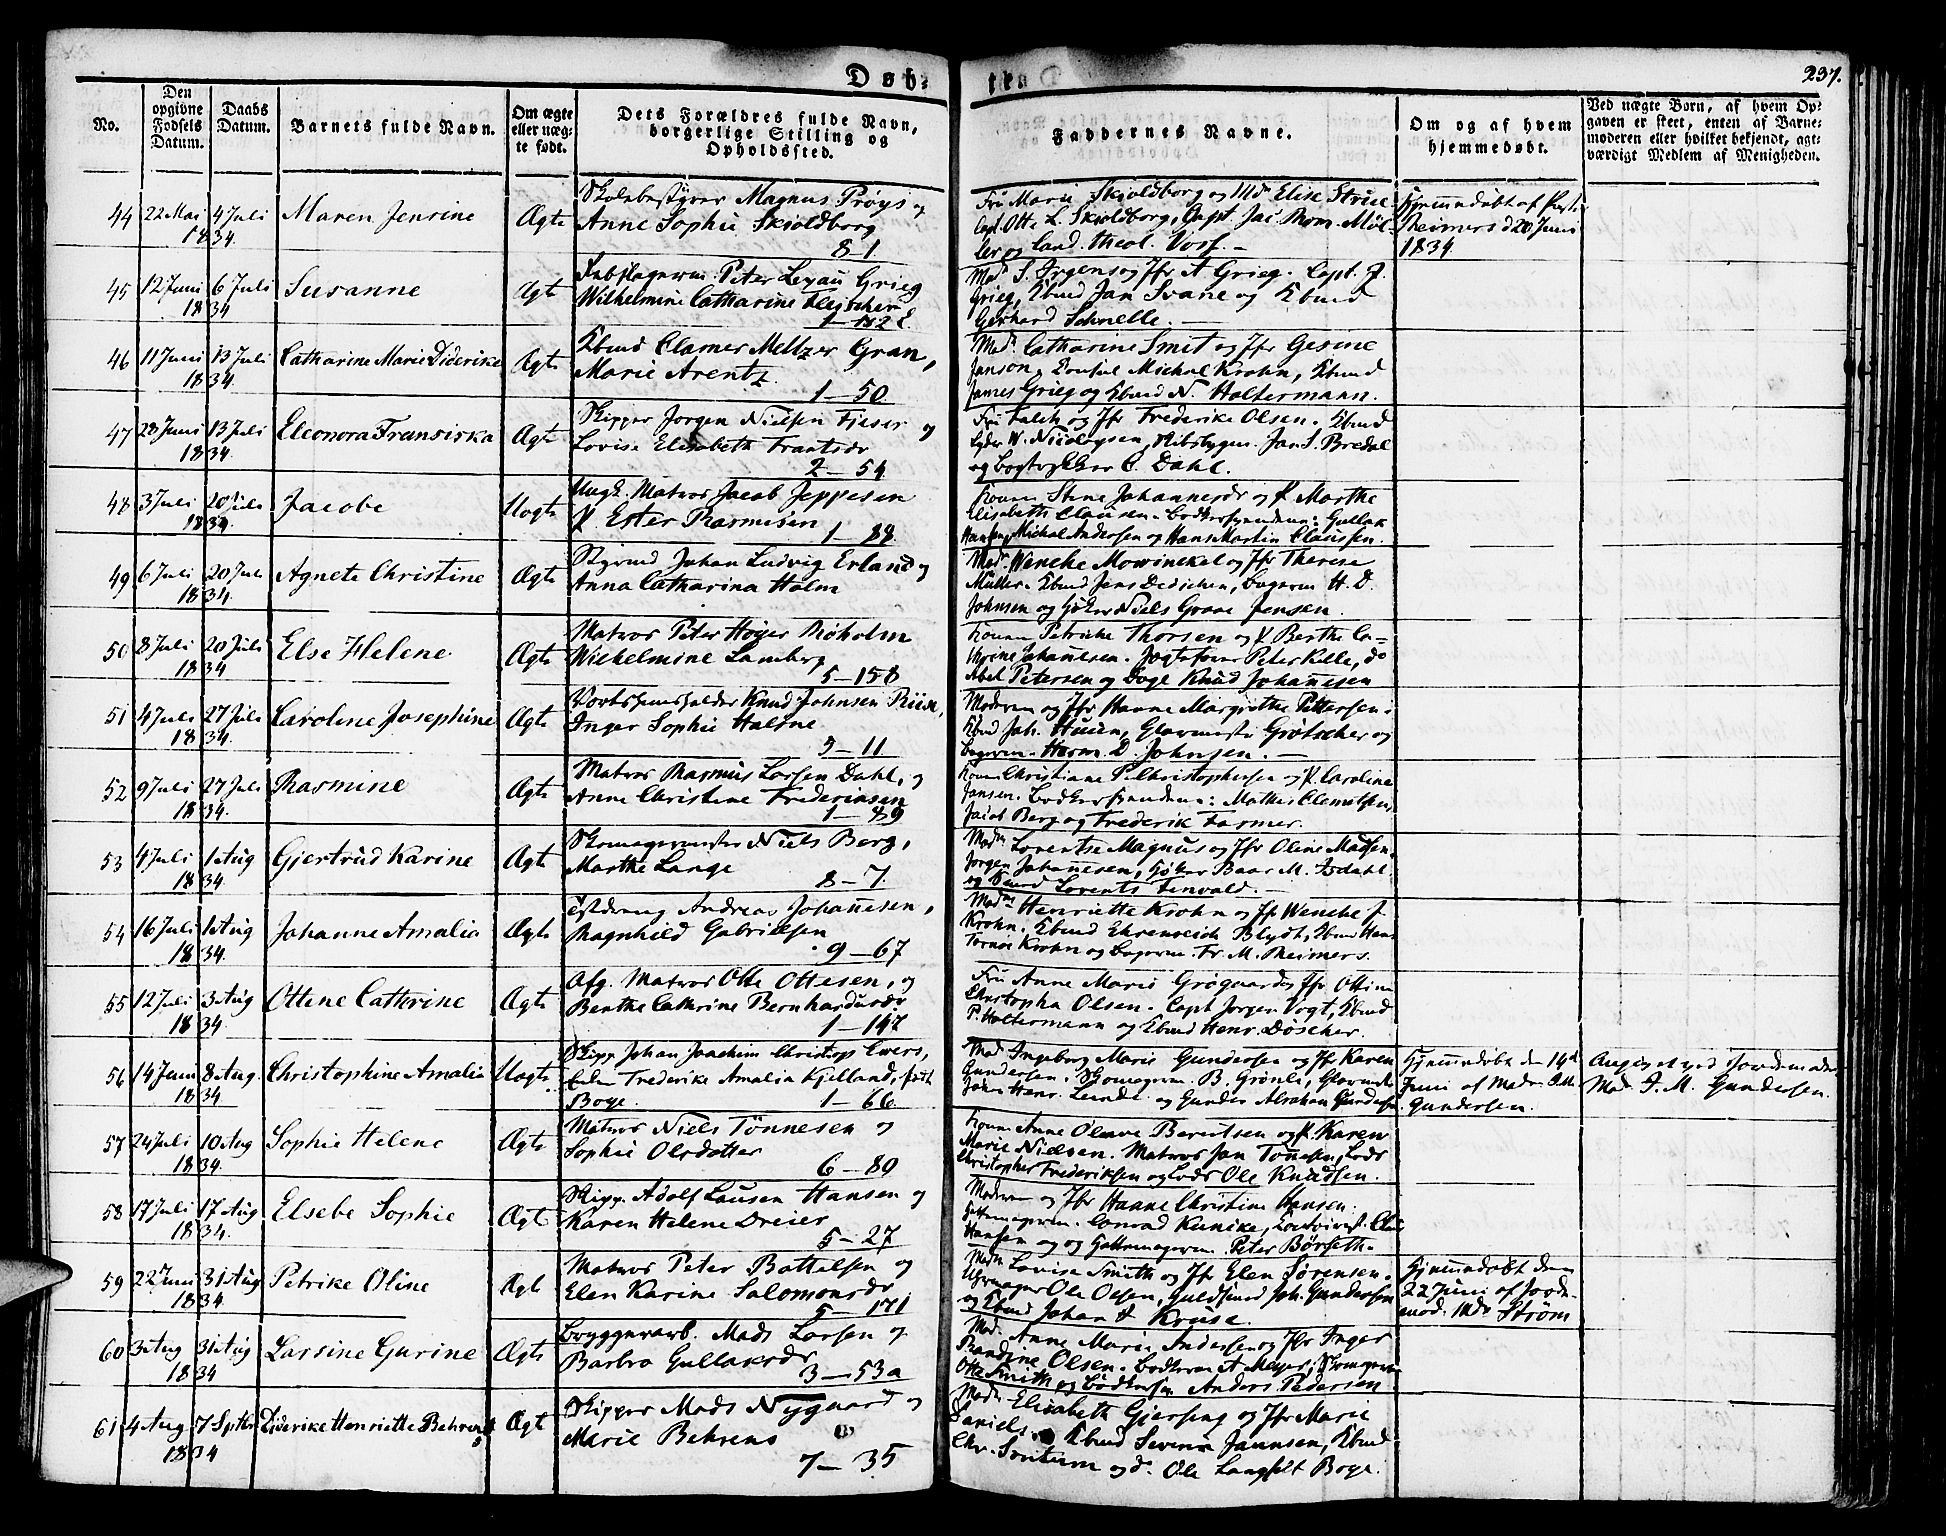 Døb-
ete
237.
No.
Den opgivne Fødsels Datum.
Daabs Datum.
Barnets fulde Navn.
Om ægte eller uæg-te født.
Dets Forældres fulde Navn, borgerlige Stilling og Opholdssted.
Faddernes Navne.
Om og af hvem hjemmedøbt.
Ved uægte Børn, af hvem Op-
gaven er skeet, enten af Barne-
moderen eller hvilket bekjendt, agt-
værdigt Medlem af Menigheden.
44 22 Mai 4 Juli 1834 Maren Jensine Ægte
Skolebestyrer Magnus Prøys og
Anne Sophie Skioldborg
8 1
Fru Marie Skioldborg og Md Elise
Capt. Otte L. Skioldborg, Capt. Jac. Møl-
ler og Cand. theol. Voss. -
Hjemmedøbt af
Reimers d 20 Juni
1834
45 12 Juni 6 Juli 1834 Susanne Ægte
Peter Lexau Grieg
Wilhelmine Catharine Fleischer
Mad. S. Irgens og Jfr A. Grieg. Capt. J.
Grieg, Kbmd Jan Svane og Kbmd
Gerhard Schnelle. -
46 11 Juni 13 Juli 1834. Catharine Marie Diderike Ægte
Kbmd Clamer Meltzer Gran,
Marie Arentz.
1 - 50
Mad. Catharine Smit og Jfr Gesine
Janson, Consul Michael Krohn, Kbmd
James Grieg og Kbmd N. Holtermann.
47 28 Juni 13 Juli 1834. Eleonora Fransiska Ægte
Skipper Jørgen Nielsen Fjeser og
Lovise Elisabeth Frantsdr
2 - 54
Fru Falch og Jfr Frederike Olsen. Kbmd
Lyder W. Nicolaysen, Skibsbygm. Jan S. Bredal
og Bogtrykker C. Dahl.
48 3 Juli 20 Juli 1834. Jacobe Uægte
Ungk. Matros Jacob Jeppesen
P. Ester Rasmussen
1 - 88
Konen Stine Johannesdr og P. Marthe
Elisabeth Clausen. Bødkersvendene: Gullak
Hansen, Michal Andersen og Hans Martin Claussen.
49 6 Juli 20 Juli 1834. Agnete Christine Ægte
Styrmd Johan Ludvig Erland og
Anna Catharina Holm
Mad. Wenche Mowinckel og Jfr Therese
Müller. Kbmd Jens Dedichen, Bagerm. H. D.
Johnsen og Høker Niels Grave Jensen.
50 8 Juli 20 Juli 1834 Else Helene Ægte
Matros Peter Høyer Roholm
Wilhelmine Lamberg
5 - 158
Konen Petricke Thorsen og P. Berthe Ca-
thrine Johannesen. Jægtefører Peter Kelle, do
Abel Petersen og Dagl Knud Johannesen
51 4 Juli 27 Juli 1834. Caroline Josephine Ægte
Vertshuusholder Knud Johnsen Riise,
Inger Sophie Halsne
5 - 11
Moderen og Jfr Hanne Margrethe Pettersen.
Kbmd Joh. Huun, Glarmestr Grøtscher og
Bagerm. Herm. D. Johnsen. -
52 9 Juli 27 Juli 1834. Rasmine Ægte
Matros Rasmus Larsen Dahl, og
Anne Christine Frederiksen
1 - 49
Konen Christiane P. Christophersen og P. Caroline
Jansen. Bødkersvendene: Mathis Clemetsen,
Jacob Berg og Frederik Farmer.
53 4 Juli 1 Aug 1834. Gjertrud Karine Ægte
Skomagermester Niels Berg,
Marthe Lange
8 - 7.
Mad. Lorentse Magnus og Jfr Oline Madsen.
Jørgen Johannesen, Høker Baar M. Isdahl
og Lorents Tenvold. -
54 16 Juli 1 Aug 1834. Johanne Amalia Ægte
Andreas Johannesen,
Magnhild Gabrielsen
9 - 67
Mad. Henriette Krohn og Jfr Wenche J.
Krohn. Kbmd Ehrenreich Blydt, Kbmd Hans
Tornøe Krohn og Bagerm. Fr. M. Reimers.
55 12 Juli 3 Aug 1834 Ottene Cathrine Ægte
Afg. Matros Otte Ottesen, og
Berthe Cathrine Bernhardusdr
1 - 147
Fru Anne Marie Grøgaard og Jfr Ottine
Christopha Olsen. Capt Jørgen Vogt, Kbmd
P. Holtermann og Kbmd Henr. Döscher.
56 14 Juni 8 Aug. 1834 Christophine Amalia Uægte
Skipp Johan Joachim Christop Ewers,
Frederike Amalia Kjelland, født
Boye.
1 - 66
Mad Ingeborg Marie Gundersen og Jfr Karen
Gundersen. Skomagerm. B. Grønli, Glarmestr
Johan Henr. og Gunder Abraham Gundersen.
Hjemmedøbt den 14d
Juni af Madm
Gundersen.
Angivet ved Jordemoder
Mad. I. M. Gundersen.
57 24 Juli 10 Aug 1834. Sophie Helene Ægte
Matros Niels Tönnesen og
Sophie Olsdatter
6 - 80
Konen Anne Olave Berentsen og P. Karen
Marie Nielsen. Matros Jan Tönnesen, Lods
Christopher Frederiksen og Lods Ole Knudsen.
58 17 Juli 17 Aug 1834. Elsebe Sophie Ægte
Skipp. Adolf Lausen Hansen og
Karen Helene Dreier
5 - 27
Moderen og Jfr Hanne Christine Hansen.
Hattemagerm. Conrad Kunike,
Hansen og og Hattemagerm. Peter Børseth.
59 22 Juni 31 Aug 1834. Petrike Oline Ægte
Matros Peter Bottelsen og
Elen Karine Salomonsdr
5 - 171
Madm Lovise Smith og Jfr Elen Sørensen.
Uhrmager Ole Olsen, Guldsmed Joh. Gundersen
og Kbmd Johan F. Kruse.
Hjemmedøbt den
22 Juni af Jorde-
mod. Mad Strøm
60 3 Aug 31 Aug 1834 Larsine Gurine Ægte
Bryggerarb. Mads Larsen og
Barbra Gullaksdr
3 - 53a
Mad. Anne Marie Andersen og Jfr Inger
Randine Olsen. Bødkerm A Meyer, Skomagerm
Otte Smith og Anders Pedersen
61 4 Aug 7 Spthr 1834 Diderike Henriette Behrens Ægt
Skipper Mads Nygaard og
Marie Behrens
7 - 35
Madm Elisabeth Gjersing og Jfr Marie
Daniels. Kbmd Severin Jannsen, Kbmd
Chr. Sontum og do. Ole Langfelt Boye.